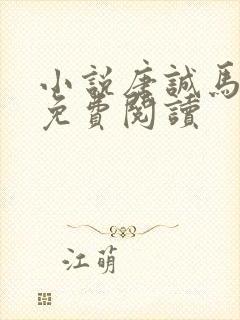 小説唐誠馬
免費閱讀
江萌